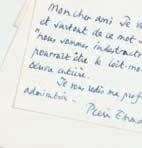 Mon cher ami Je v
et surtout de ce mot -
"nous sommes indestructi
pourrait être le leit-mo
œuvre entière.
Je vous redis ma prof
admiration.